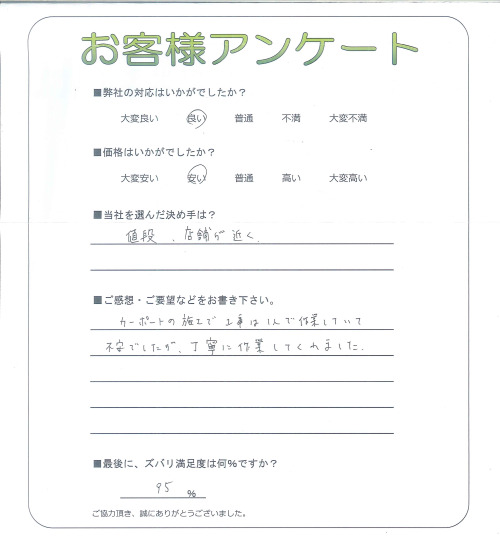 お客様アンケート
■弊社の対応はいかがでしたか？
大変良い 良い 普通 不満 大変不満
■価格はいかがでしたか？
大変安い 安い 普通 高い 大変高い
■当社を選んだ決め手は？
値段、店舗が近く.
■ご感想・ご要望などをお書き下さい。
カーポートの施工で工事は1人で作業していて
不安でしたが、丁寧に作業してくれました.
■最後に、ズバリ満足度は何%ですか？
95 %
ご協力頂き、誠にありがとうございました。